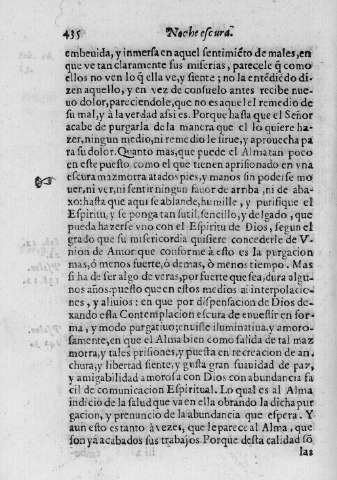 435 Noche escura
embeuida, y inmersa en aquel sentimiẽto de males, en
que ve tan claramente sus miserias, parecele q̃ como
ellos no ven lo q̃ ella ve, y siente; no la entẽdiẽdo di-
zen aquello, y en vez de consuelo antes recibe nue-
uo dolor, pareciendole, que no es aquel el remedio de
su mal, y à la verdad assi es. Porque hasta que el Señor
acabe de purgarla de la manera que el lo quiere ha-
zer, ningun medio, ni remedio le sirue, y aprouecha pa
ra su dolor. Quanto mas, que puede el Alma tan poco
en este puesto como el que tienen aprisionado en vna
escura mazmorra atado pies, y manos sin poderse mo
uer, ni ver, ni sentir ningun fauor de arriba, ni de aba-
xo: hasta que aqui se ablande, humille, y purifique el
Espiritu, y se ponga tan sutil, sencillo, y delgado, que
pueda hazerse vno con el Espiritu de Dios, segun el
grado que su misericordia quisiere concederle de V-
nion de Amor que conforme à esto es la purgacion
mas, ò menos fuerte, ò de mas, ò menos tiempo. Mas
si ha de ser algo de veras, por fuerte que sea, dura algu-
nos años: puesto que en estos medios ai interpolacio-
nes, y aliuios: en que por dispensacion de Dios de-
xando esta Contemplacion escura de enuestir en for-
ma, y modo purgatiuo; enuiste iluminatiua, y amoro-
samente, en que el Alma bien como salida de tal maz
morra, y tales prisiones, y puesta en recreacion de an-
chura, y libertad siente, y gusta gran suauidad de paz,
y amigabilidad amorosa con Dios con abundancia fa
cil de comunicacion Espiritual. Lo qual es al Alma
indicio de la salud que va en ella obrando la dicha pur
gacion, y prenuncio de la abundancia que espera. Y
aun esto es tanto à vezes, que le parece al Alma, que
son ya acabados sus trabajos. Porque desta calidad sõ
las